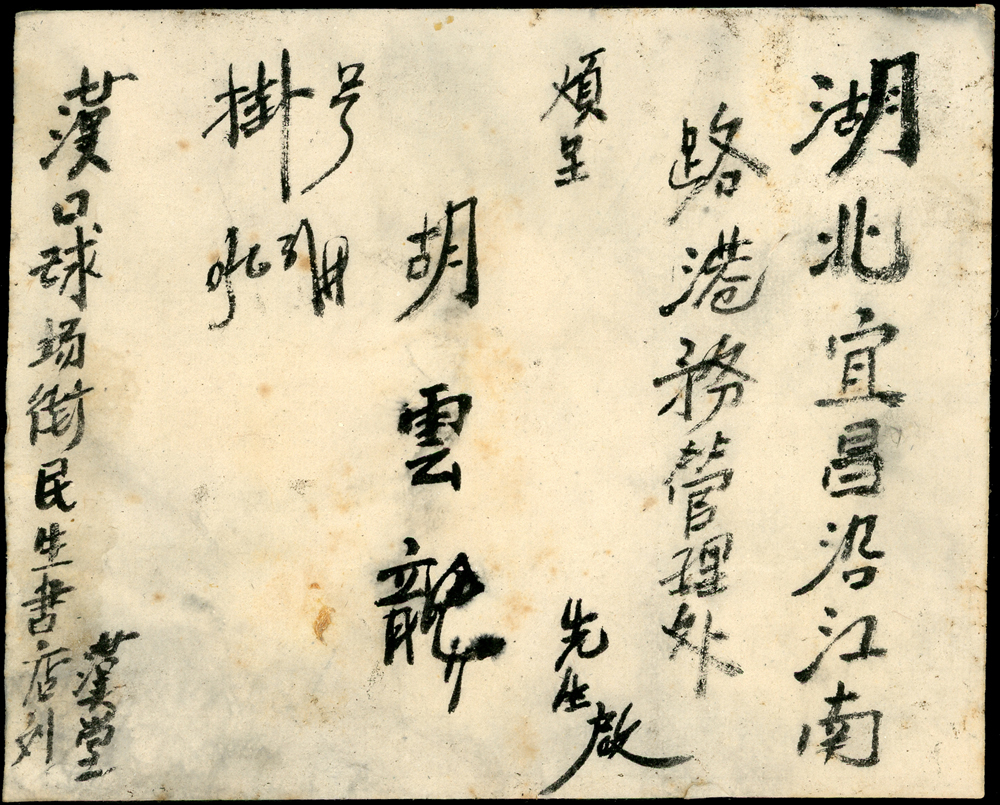 湖北宜昌沿江南
路港務管理处
煩呈
先生啟
胡雲龍
掛号
漢口球场街民生書店刘
漢堂